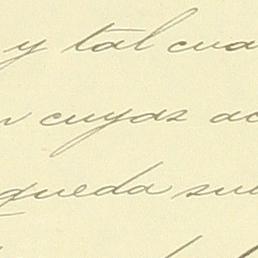 y tal cua
cuyas ac
queda su